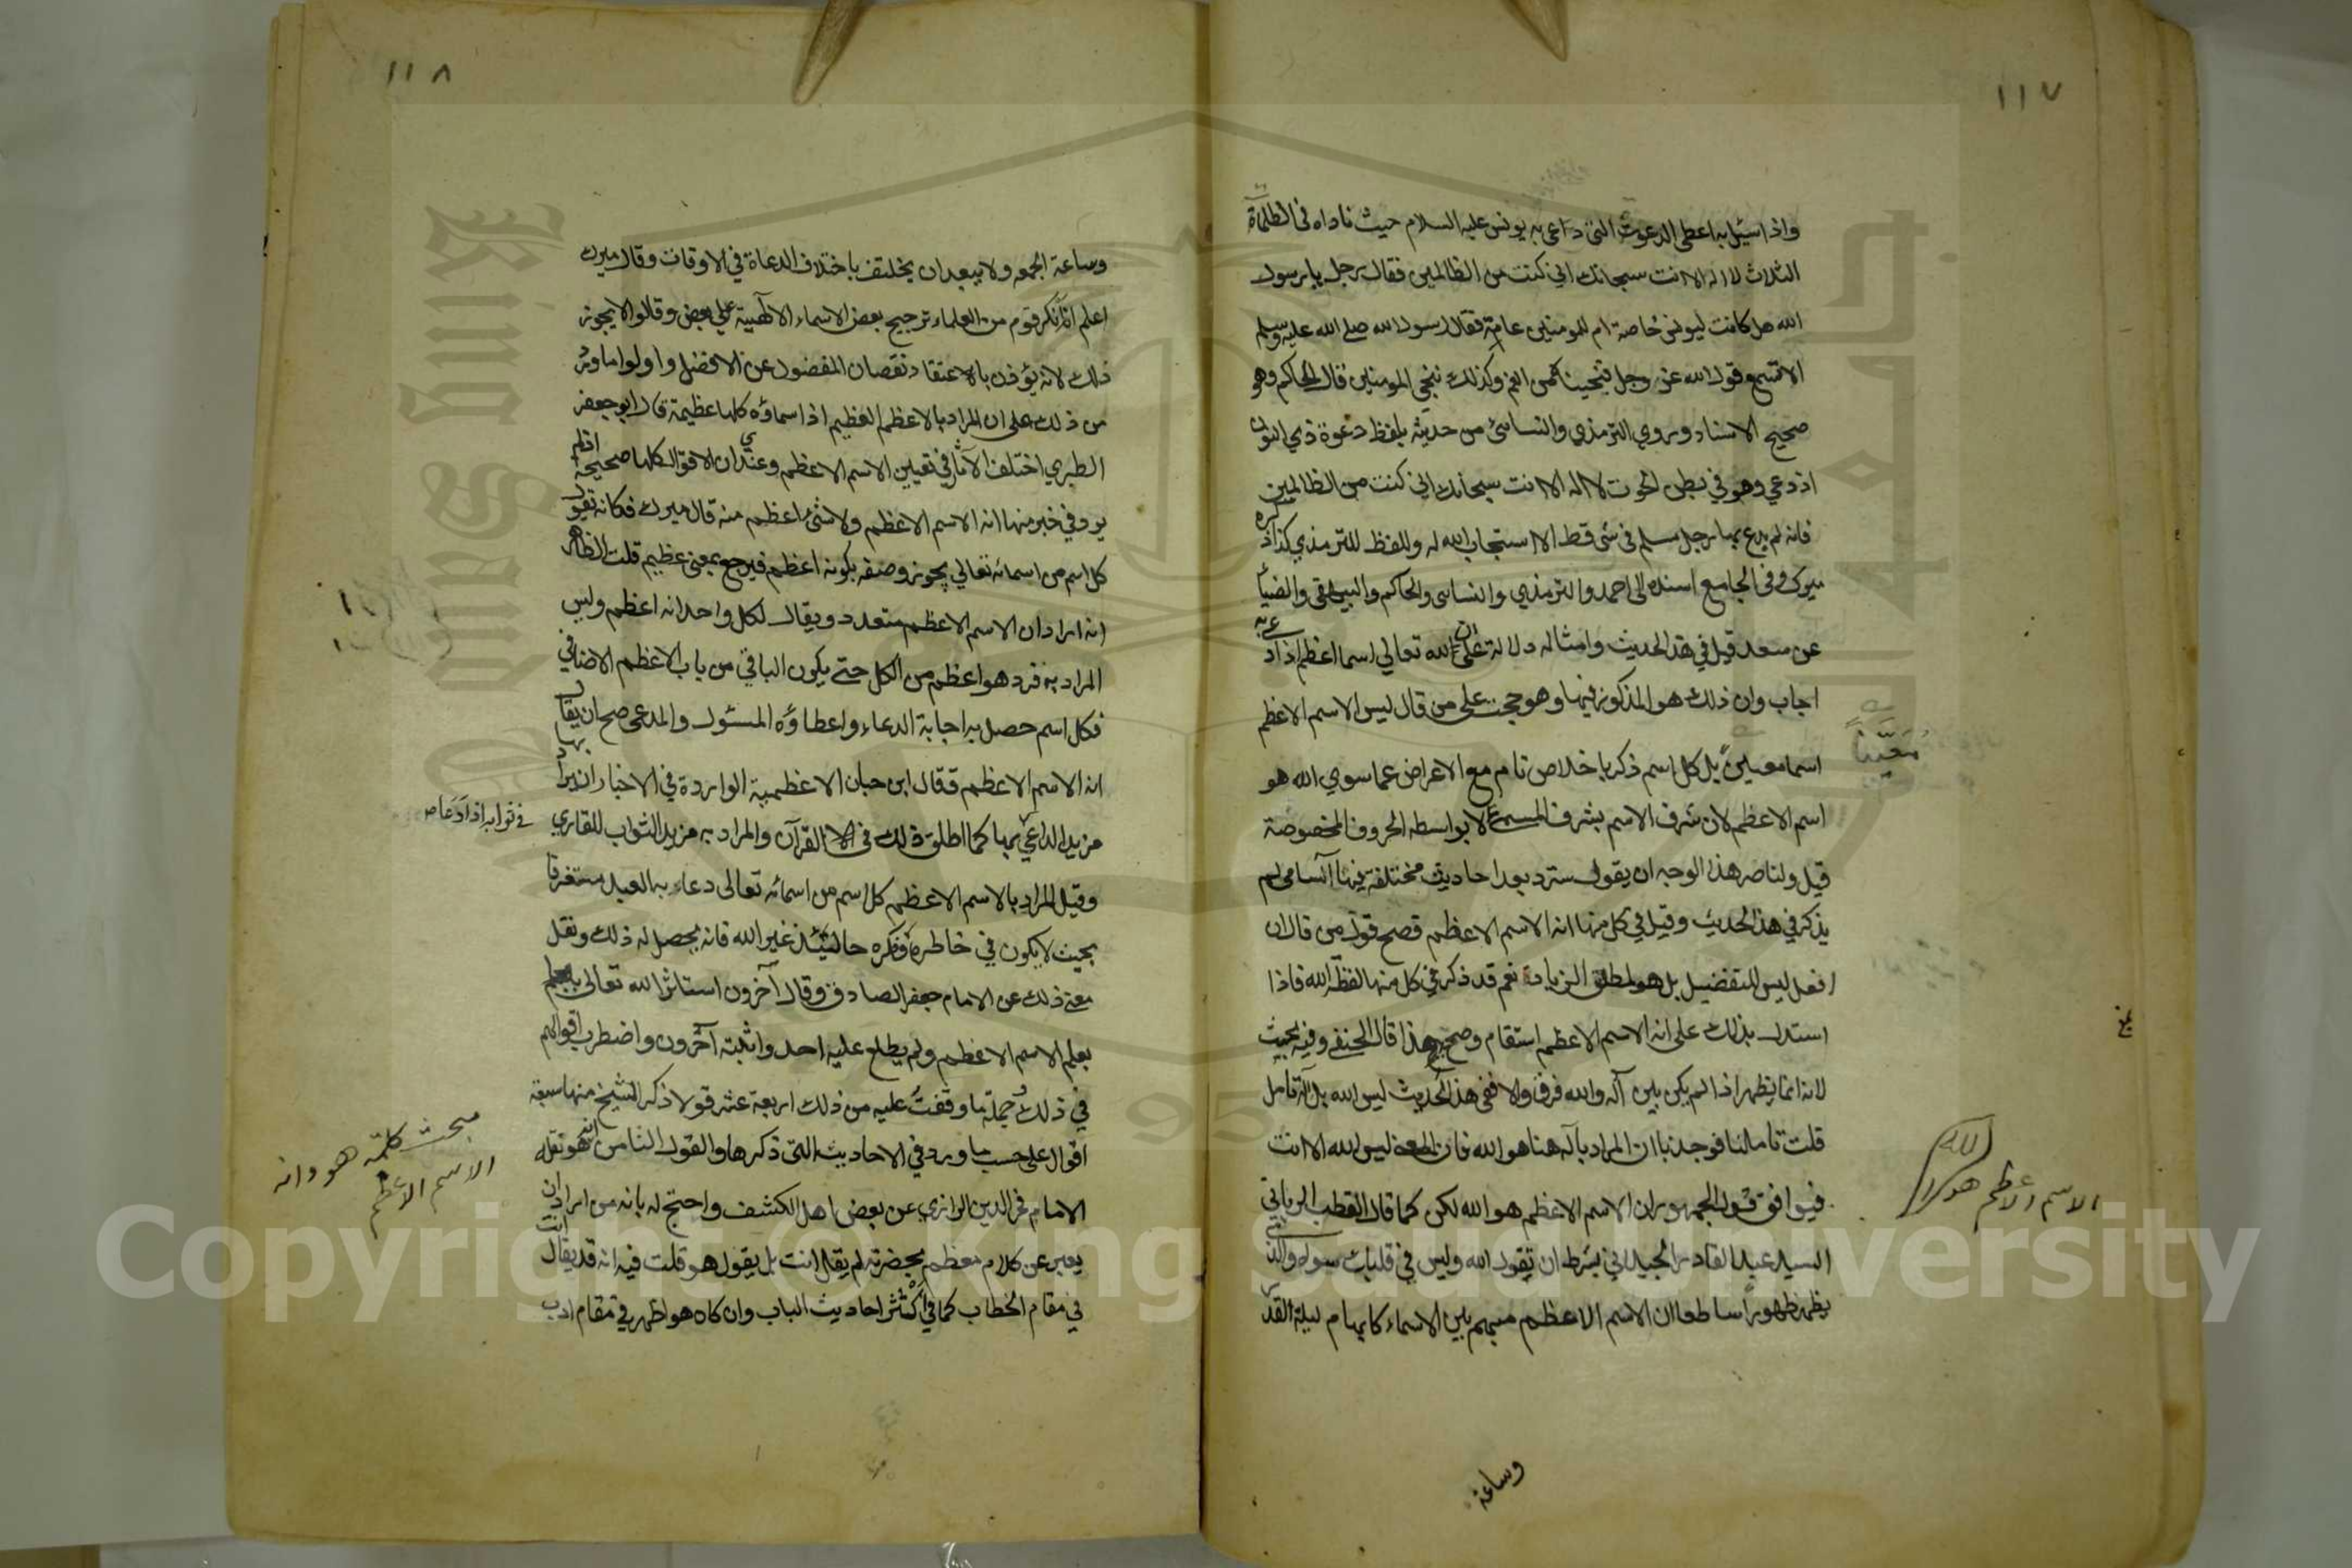 ١١٧
واذا سئل به اعطى الدعوة التي دعى به يونس عليه السلام حيث ناداه في الظلمات
الثلاث لا اله الا انت سبحانك اني كنت من الظالمين فقال رجل يا رسول
الله هل كانت ليونس خاصة ام للمومنين عامة فقال رسول الله صلى الله عليه وسلم
الا تسمع قول الله عز وجل فنجيناه من الغم وكذلك ننجي المومنين قال الحاكم وهو
صحيح الاسناد وروي الترمذي والنسائي من حديثه بلفظ دعوة ذي النون
اذ دعي وهو في بطن الحوت لا اله الا انت سبحانك اني كنت من الظالمين
فانه لم يدع بها رجل مسلم في شئ قط الا استجاب الله له واللفظ للترمذي كذا ذكره
ميرك وفي الجامع اسنده الى احمد والترمذي والنسائى والحاكم والبيهقي والضيأ
عن سعد قيل في هذا الحديث وامثاله دلالة على ان الله تعالي اسما اعظم اذا دعي به
اجاب وان ذلك هو المذكور فيها وهو حجة علي من قال ليس الاسم الاعظم
اسما معينا بل كل اسم ذكر باخلاص تام مع الاعراض عما سوي الله هو
اسم الاعظم لان شرف الاسم بشرف المسمى لا بواسطه الحروف المخصوصة
قيل ولناصر هذا الوجه ان يقول سترد بعد احاديث مختلفة فيها اسامى لم
يذكر في هذا الحديث وقيل في كل منها انه الاسم الاعظم فصح قول من قال ان
افعل ليس للتفضيل بل هو لمطلق الزيادة نعم قد ذكر في كل منها لفظة الله فاذا
استدل بذلك على انه الاسم الاعظم استقام وصح هذا قال الحنفي وفيه بحيث
لانه انما يظهر اذا لم يكن بين آله والله فرق والا ففي هذا الحديث ليس الله بل آله تامل
قلت تاملنا فوجدنا ان المراد بآله هنا هو الله فان المعنى ليس الله الا انت
فيوافق قول الجمهور ان الاسم الاعظم هو الله لكن كما قال القطب الرباني
السيد عبد القادر الجيلاني بشرط ان تقول الله وليس في قلبك سواه والذي
يظهر ظهورا ساطعا ان الاسم الاعظم مبهم بين الاسماء كابهام ليلة القدر
معينا
الاسم الاعظم هو الله
وساعة
١١٨
وساعة الجمعه ولا يبعد ان يختلف باختلاف الدعاة في الاوقات وقال ميرك
اعلم انه انكر قوم من العلماء ترجيح بعض الاسماء الالهية علي بعض وقالوا لا يجوز
ذلك لانه يؤذن بالاعتقاد نقصان المفضول عن الافضل واولوا ما ورد
من ذلك على ان المراد بالاعظم العظيم اذ اسماؤه كلها عظيمة قال ابو جعفر
الطبري اختلف الآثار في تعيين الاسم الاعظم وعندي ان الاقوال كلها صحيحة اذ لم
يرد في خبر منها انه الاسم الاعظم ولا شئ اعظم منه قال ميرك فكانه تقول
كل اسم من اسمائه تعالي يجوز وصفه بكونه اعظم فيرجع بمعنى عظيم قلت الظاهر
انه اراد ان الاسم الاعظم متعدد ويقال لكل واحد انه اعظم وليس
المراد به فرد هو اعظم من الكل حتى يكون الباقي من باب الاعظم الاضافي
فكل اسم حصل به اجابة الدعاء واعطاؤه المسئول والمدعى صح ان يقال
انه الاسم الاعظم فقال ابن حبان الاعظمية الواردة في الاخبار ان يراد بها
مزيد الداعي بها كما اطلق ذلك في القرآن والمراد به مزيد الثواب للقاري
وقيل المراد بالاسم الاعظم كل اسم من اسمائه تعالى دعاء به العبد مستغرقا
بحيث لا يكون في خاطره وفكره حالتئذ غير الله فانه يحصل له ذلك ونقل
معنى ذلك عن الامام جعفر الصادق وقال آخرون استاثر الله تعالى
بعلم الاسم الاعظم ولم يطلع عليه احد واثبته آخرون واضطرب اقوالهم
في ذلك وجملة ما وقفت عليه من ذلك اربعة عشر قولا ذكر الشيخ منها سبعة
اقوال على حسب ما ورد في الاحاديث التي ذكرها والقول الثامن انه هو نقله
الامام فخر الدين الرازي عن بعض اهل الكشف واحتج له بانه من اراد ان
يعبر عن كلام معظم بحضرته لم يقال انت بل يقول هو قلت فيه انه قد يقال انت
في مقام الخطاب كما في اكثر احاديث الباب وان كان هو اظهر في مقام ادب
في ثوابه اذا دعا
مبحث كلمة هو وانه
الاسم الاعظم
Copyright © King Saud University